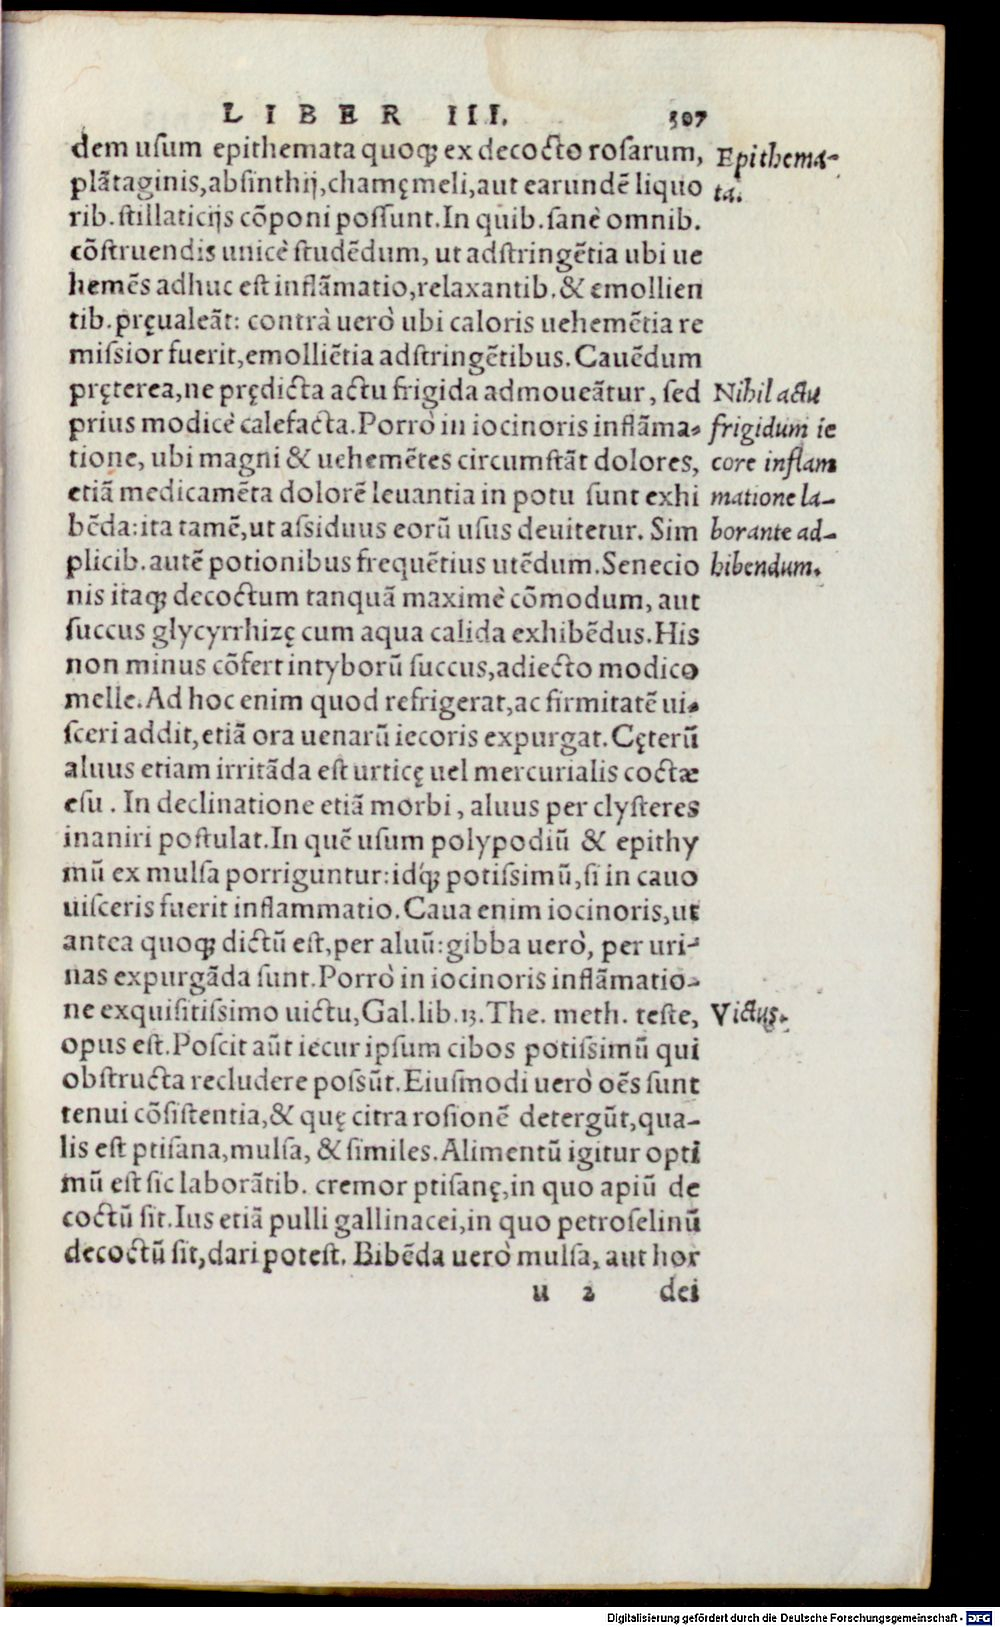 LIBER III. 307
dem uſum epithemata quoq; ex decocto roſarum,
plātaginis,abſinthij,chamęmeli,aut earundē liquo
rib.ſtillaticijs cōponi poſſunt.In quib.ſanè omnib.
cōſtruendis unicè ſtudēdum, ut adſtringētia ubi ue
hemēs adhuc eſt inflāmatio,relaxantib.& emollien
tib.pręualeāt: contrà uerò ubi caloris uehemētia re
miſſior fuerit,emolliētia adſtringētibus.Cauēdum
pręterea,ne prędicta actu frigida admoueātur, ſed
prius modicè calefacta.Porrò in iocinoris inflāma-
tione, ubi magni & uehemētes circumſtāt dolores,
etiā medicamēta dolorē leuantia in potu ſunt exhi
bēda:ita tamē,ut aſsiduus eorū uſus deuitetur. Sim
plicib.autē potionibus frequētius utēdum.Senecio
nis itaq; decoctum tanquā maximè cōmodum, aut
ſuccus glycyrrhizę cum aqua calida exhibēdus.His
non minus cōfert intyborū ſuccus,adiecto modico
melle.Ad hoc enim quod refrigerat,ac firmitatē ui-
ſceri addit,etiā ora uenarū iecoris expurgat.Cęterū
aluus etiam irritāda eſt urticę uel mercurialis coctæ
eſu. In declinatione etiā morbi, aluus per clyſteres
inaniri poſtulat.In quē uſum polypodiū & epithy
mū ex mulſa porriguntur:idq́; potiſsimū,ſi in cauo
uiſceris fuerit inflammatio.Caua enim iocinoris,ut
antea quoq; dictū eſt,per aluū:gibba uerò, per uri-
nas expurgāda ſunt.Porrò in iocinoris inflāmatio-
ne exquiſitiſsimo uictu,Gal.lib.13.The. meth. teſte,
opus eſt.Poſcit aūt iecur ipſum cibos potiſsimū qui
obſtructa recludere poſsūt.Eiuſmodi uerò oēs ſunt
tenui cōſiſtentia,& quę citra roſionē detergūt,qua-
lis eſt ptiſana,mulſa, & ſimiles.Alimentū igitur opti
mū eſt ſic laborātib. cremor ptiſanę,in quo apiū de
coctū ſit.Ius etiā pulli gallinacei,in quo petroſelinū
decoctū ſit,dari poteſt. Bibēda uerò mulſa, aut hor
u 2 dei
Epithema-
ta.
Nihil actu
frigidum ie
core inflam
matione la-
borante ad-
hibendum.
Victus.
Digitalisierung gefördert durch die Deutsche Forschungsgemeinschaft - DFG